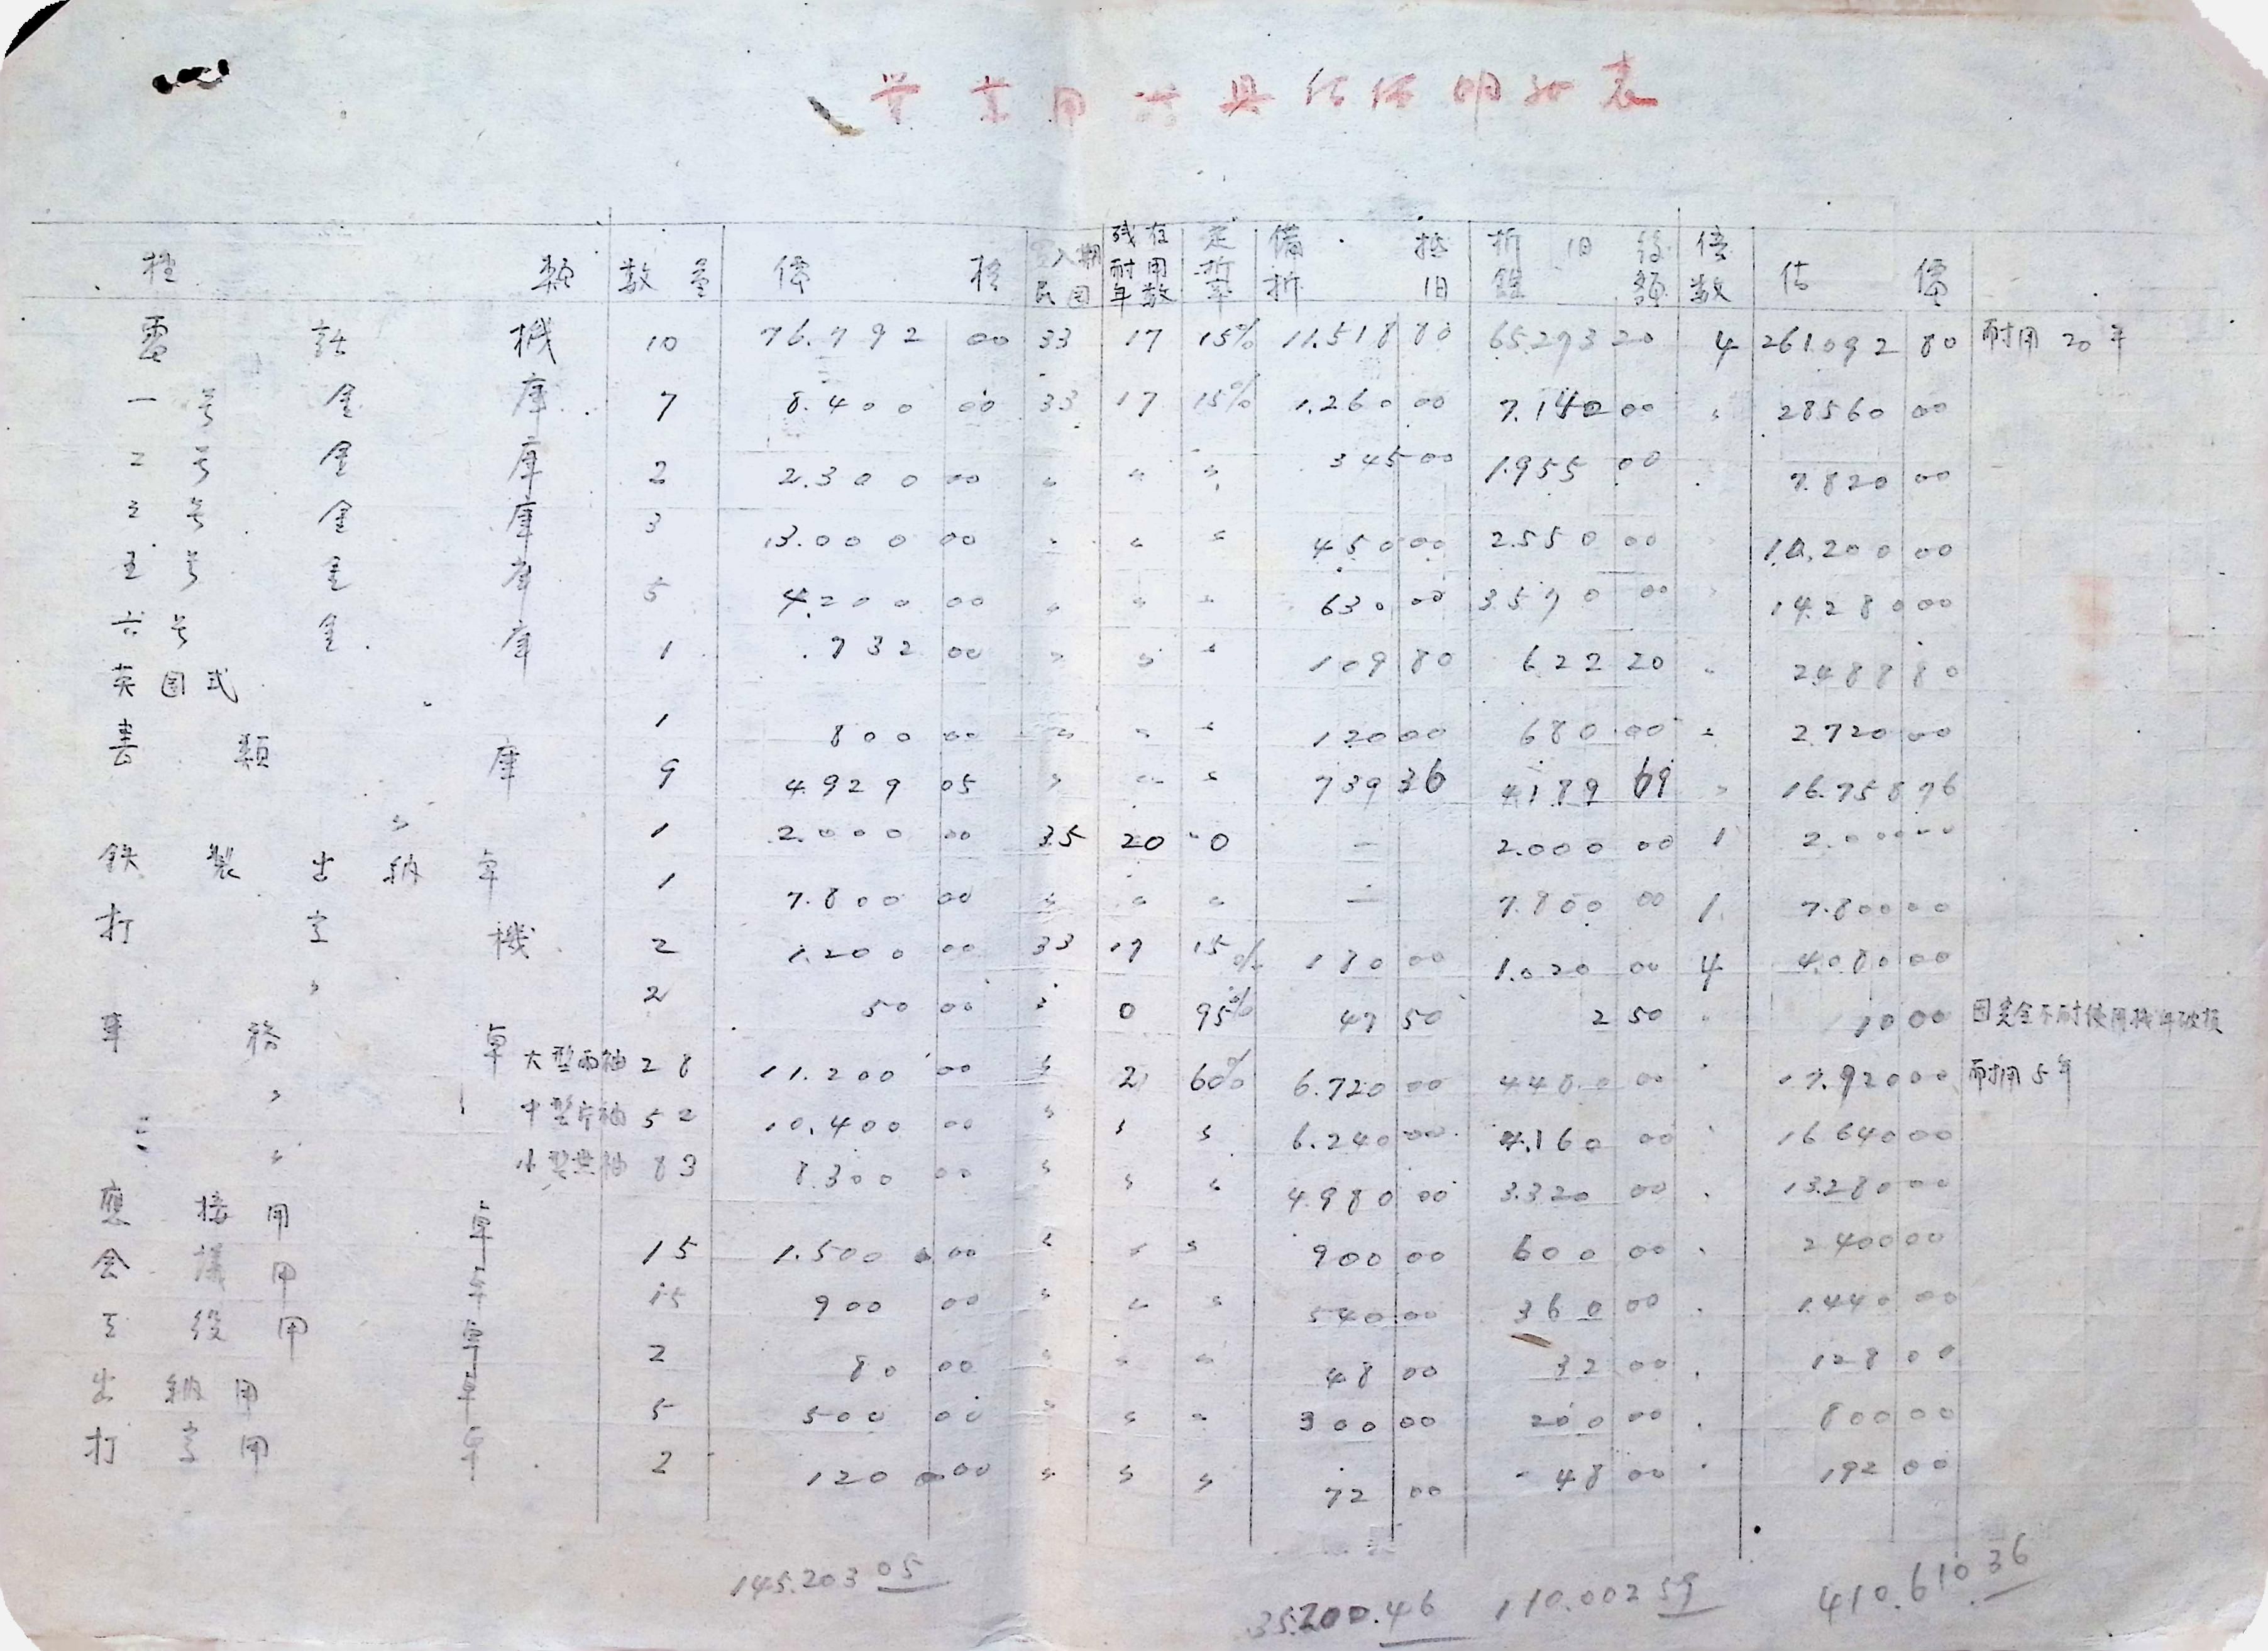 営業用器具估価明細表
種類 数量 価格 買入期民国 残存耐用年数 定折率 備抵折旧 折旧後餘額 倍数 估價
電話機 10 76.792 00 33 17 15% 11.518 80 65.273 20 4 261.092 80 耐用20年
一号金庫 7 8.400 00 33 17 15% 1.260 00 7.140 00 〃 28560 00
2号金庫 2 2.300 00 〃 〃 〃 345 00 1.955 00 7.820 00
三号金庫 3 13.000 00 〃 〃 〃 450 00 2.550 00 10.200 00
五号金庫 5 4.200 00 〃 〃 〃 630 00 3570 00 〃 14.280 00
六号金庫 1 732 00 〃 〃 〃 109 80 622 20 〃 2488 80
英国式 1 800 00 〃 〃 〃 120 00 680 00 〃 2720 00
書類庫 9 4.929 05 〃 〃 〃 739 36 4189 69 〃 16.758 76
〃 1 2.000 00 35 20 0 — 2.000 00 1 2.000 00
鉄製出納卓 1 7.800 00 〃 〃 〃 — 7.800 00 1 7.800 00
打字機 2 1.200 00 33 17 15% 180 00 1.020 00 4 4.080 00
〃 2 50 00 〃 0 95% 47 50 2 50 〃 10 00
事務卓 大型両袖 28 11.200 00 〃 2 60% 6.720 00 4480 00 〃 17.920 00 耐用5年
〃 中型片袖 52 10.400 00 〃 〃 〃 6.240 00 4.160 00 〃 16640 00
〃 小型 83 8.300 00 〃 〃 〃 4.980 00 3.320 00 〃 13.280 00
應接用卓 15 1.500 00 〃 〃 〃 900 00 600 00 〃 2400 00
会議用卓 15 900 00 〃 〃 〃 540 00 360 00 〃 1.440 00
工役用卓 2 80 00 〃 〃 〃 48 00 32 00 〃 128 00
出納用卓 5 500 00 〃 〃 〃 300 00 200 00 〃 800 00
打字用卓 2 120 00 〃 〃 〃 72 00 48 00 〃 192 00
145.203 05 35.200.46 110.002 59 410.610.36